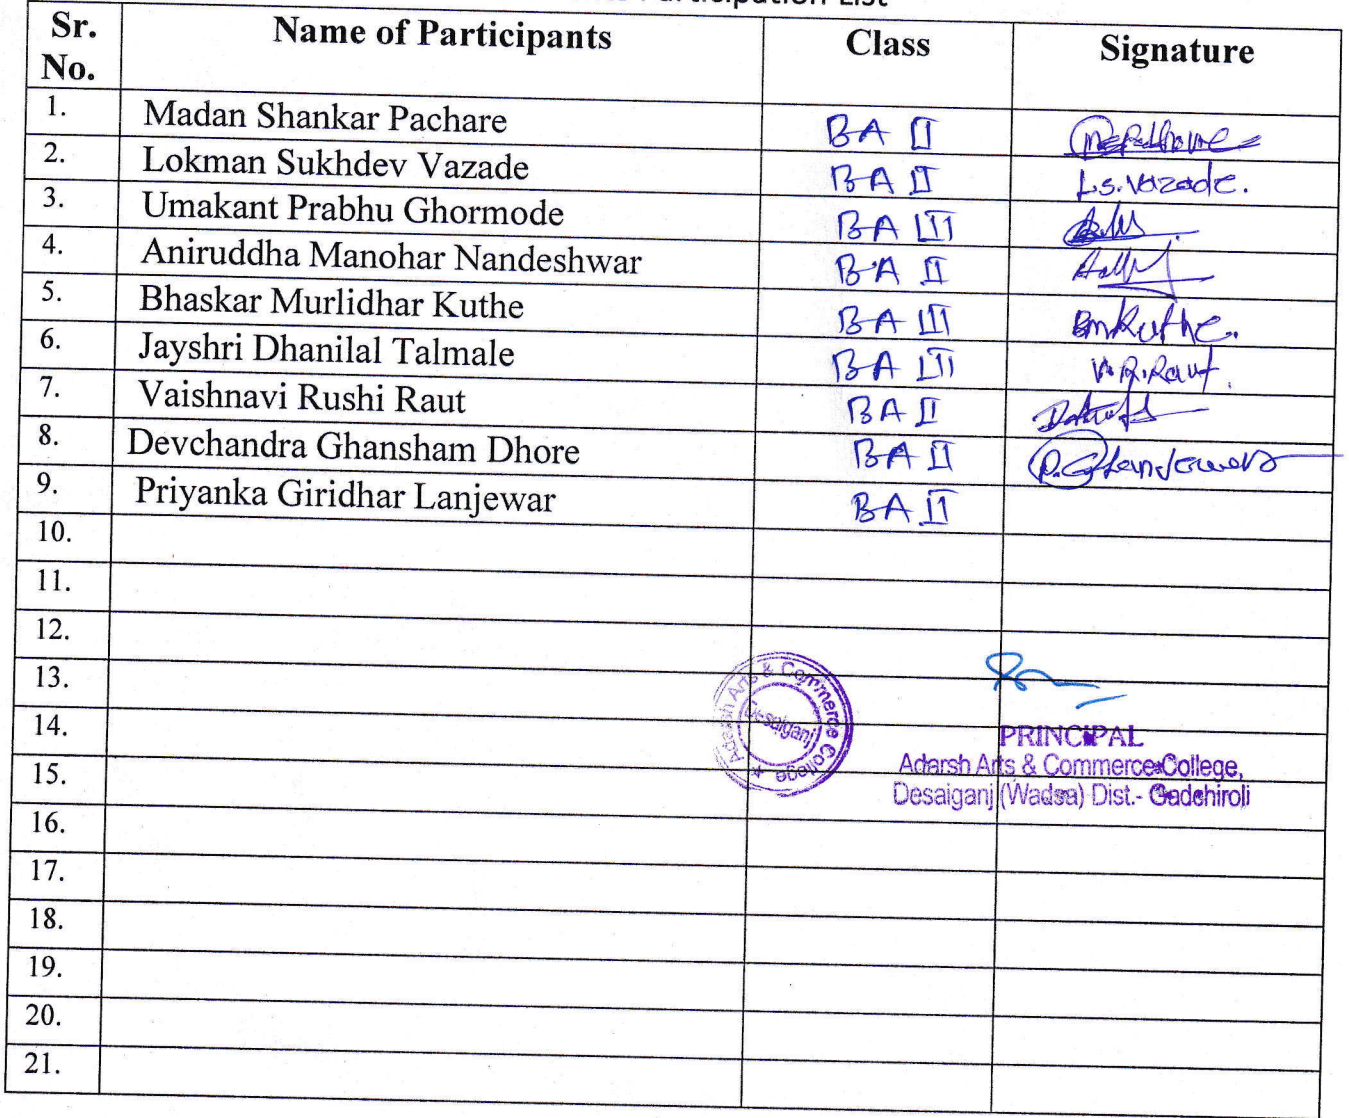 Participation List
Sr. No. Name of Participants Class Signature
1. Madan Shankar Pachare BA II
2. Lokman Sukhdev Vazade BA II L.S. Vazade.
3. Umakant Prabhu Ghormode BA III
4. Aniruddha Manohar Nandeshwar BA II
5. Bhaskar Murlidhar Kuthe BA III BMKuthe.
6. Jayshri Dhanilal Talmale BA III V.R.Raut.
7. Vaishnavi Rushi Raut BA II
8. Devchandra Ghansham Dhore BA II
9. Priyanka Giridhar Lanjewar BA II
10.
11.
12.
13.
14.
15.
16.
17.
18.
19.
20.
21.
Adarsh Arts & Commerce College
Desaiganj
PRINCIPAL
Adarsh Arts & Commerce College,
Desaiganj (Wadsa) Dist.- Gadchiroli